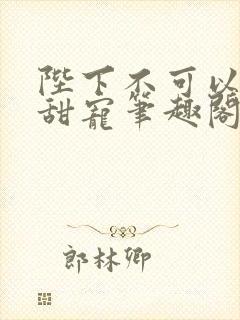 陛下不可以
甜寵筆趣閣
郎林卿